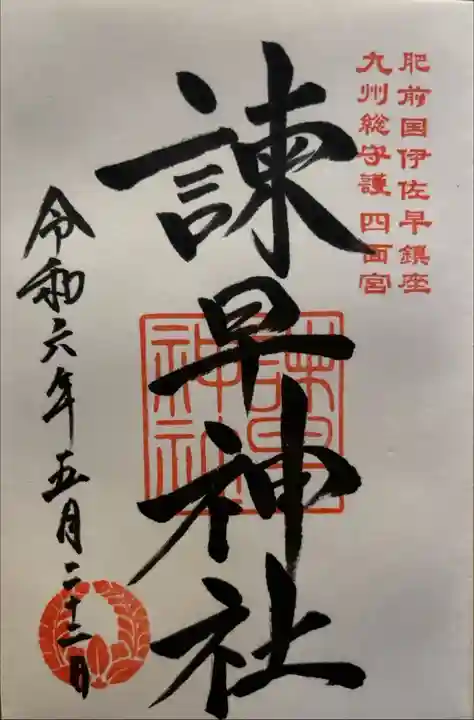 肥前国伊佐早鎮座
九州総守護 四面宮
諫早神社
諫早神社
令和六年五月二十三日